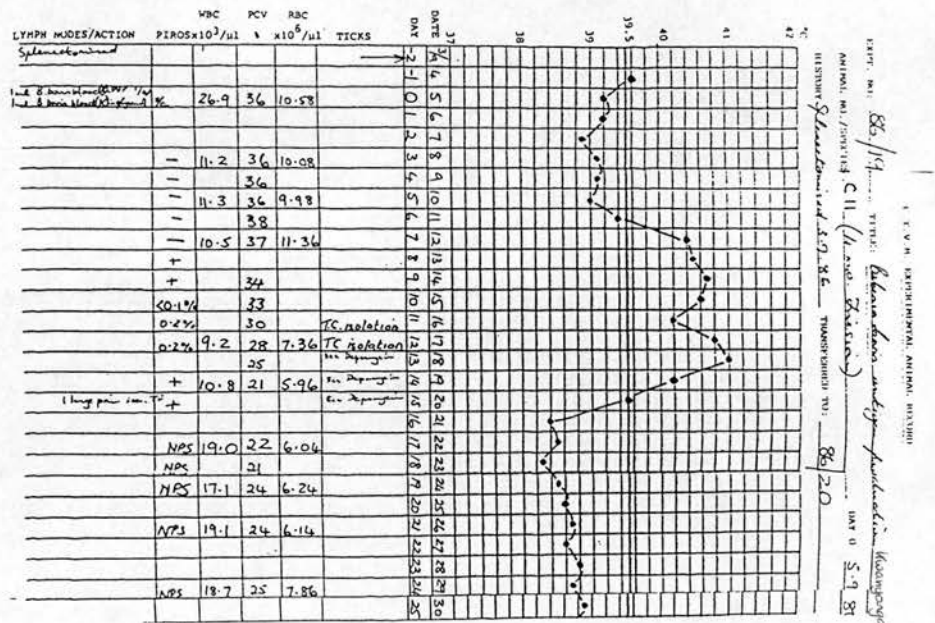 C.T.V.M. EXPERIMENTAL ANIMAL RECORD
EXPT. NO: 86/19 TITLE: Babesia bovis antigen production
ANIMAL NO./SPECIES: C11 DAY 0 5.9.8
HISTORY Splenectomised 3.9.86 TRANSFERRED TO: 86/20
°C 37 38 39 39.5 40 41 42
LYMPH NODES/ACTION PIROS WBC x10³/µl PCV % RBC x10⁶/µl TICKS DAY DATE
Splenectomised -2 3/9
-1 4
26.9 36 10.58 0 5
1 6
2 7
— 11.2 36 10.08 3 8
— 36 4 9
— 11.3 36 9.98 5 10
— 38 6 11
— 10.5 37 11.36 7 12
+ 8 13
+ 34 9 14
<0.1% 33 10 15
0.2% 30 T.C. isolation 11 16
0.2% 9.2 28 7.36 TC isolation 12 17
25 13 18
+ 10.8 21 5.96 14 19
+ 15 20
16 21
NPS 19.0 22 6.04 17 22
NPS 21 18 23
NPS 17.1 24 6.24 19 24
20 25
NPS 19.1 24 6.14 21 26
22 27
23 28
NPS 18.7 25 7.86 24 29
25 30